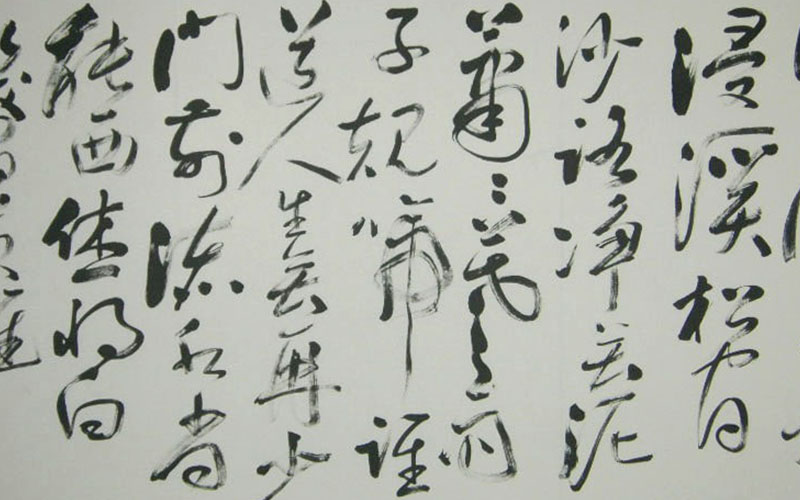 浸溪松間
沙路淨無泥
蕭〻暮雨
子規啼誰
道人生無再少
門前流水尚
能西休將白